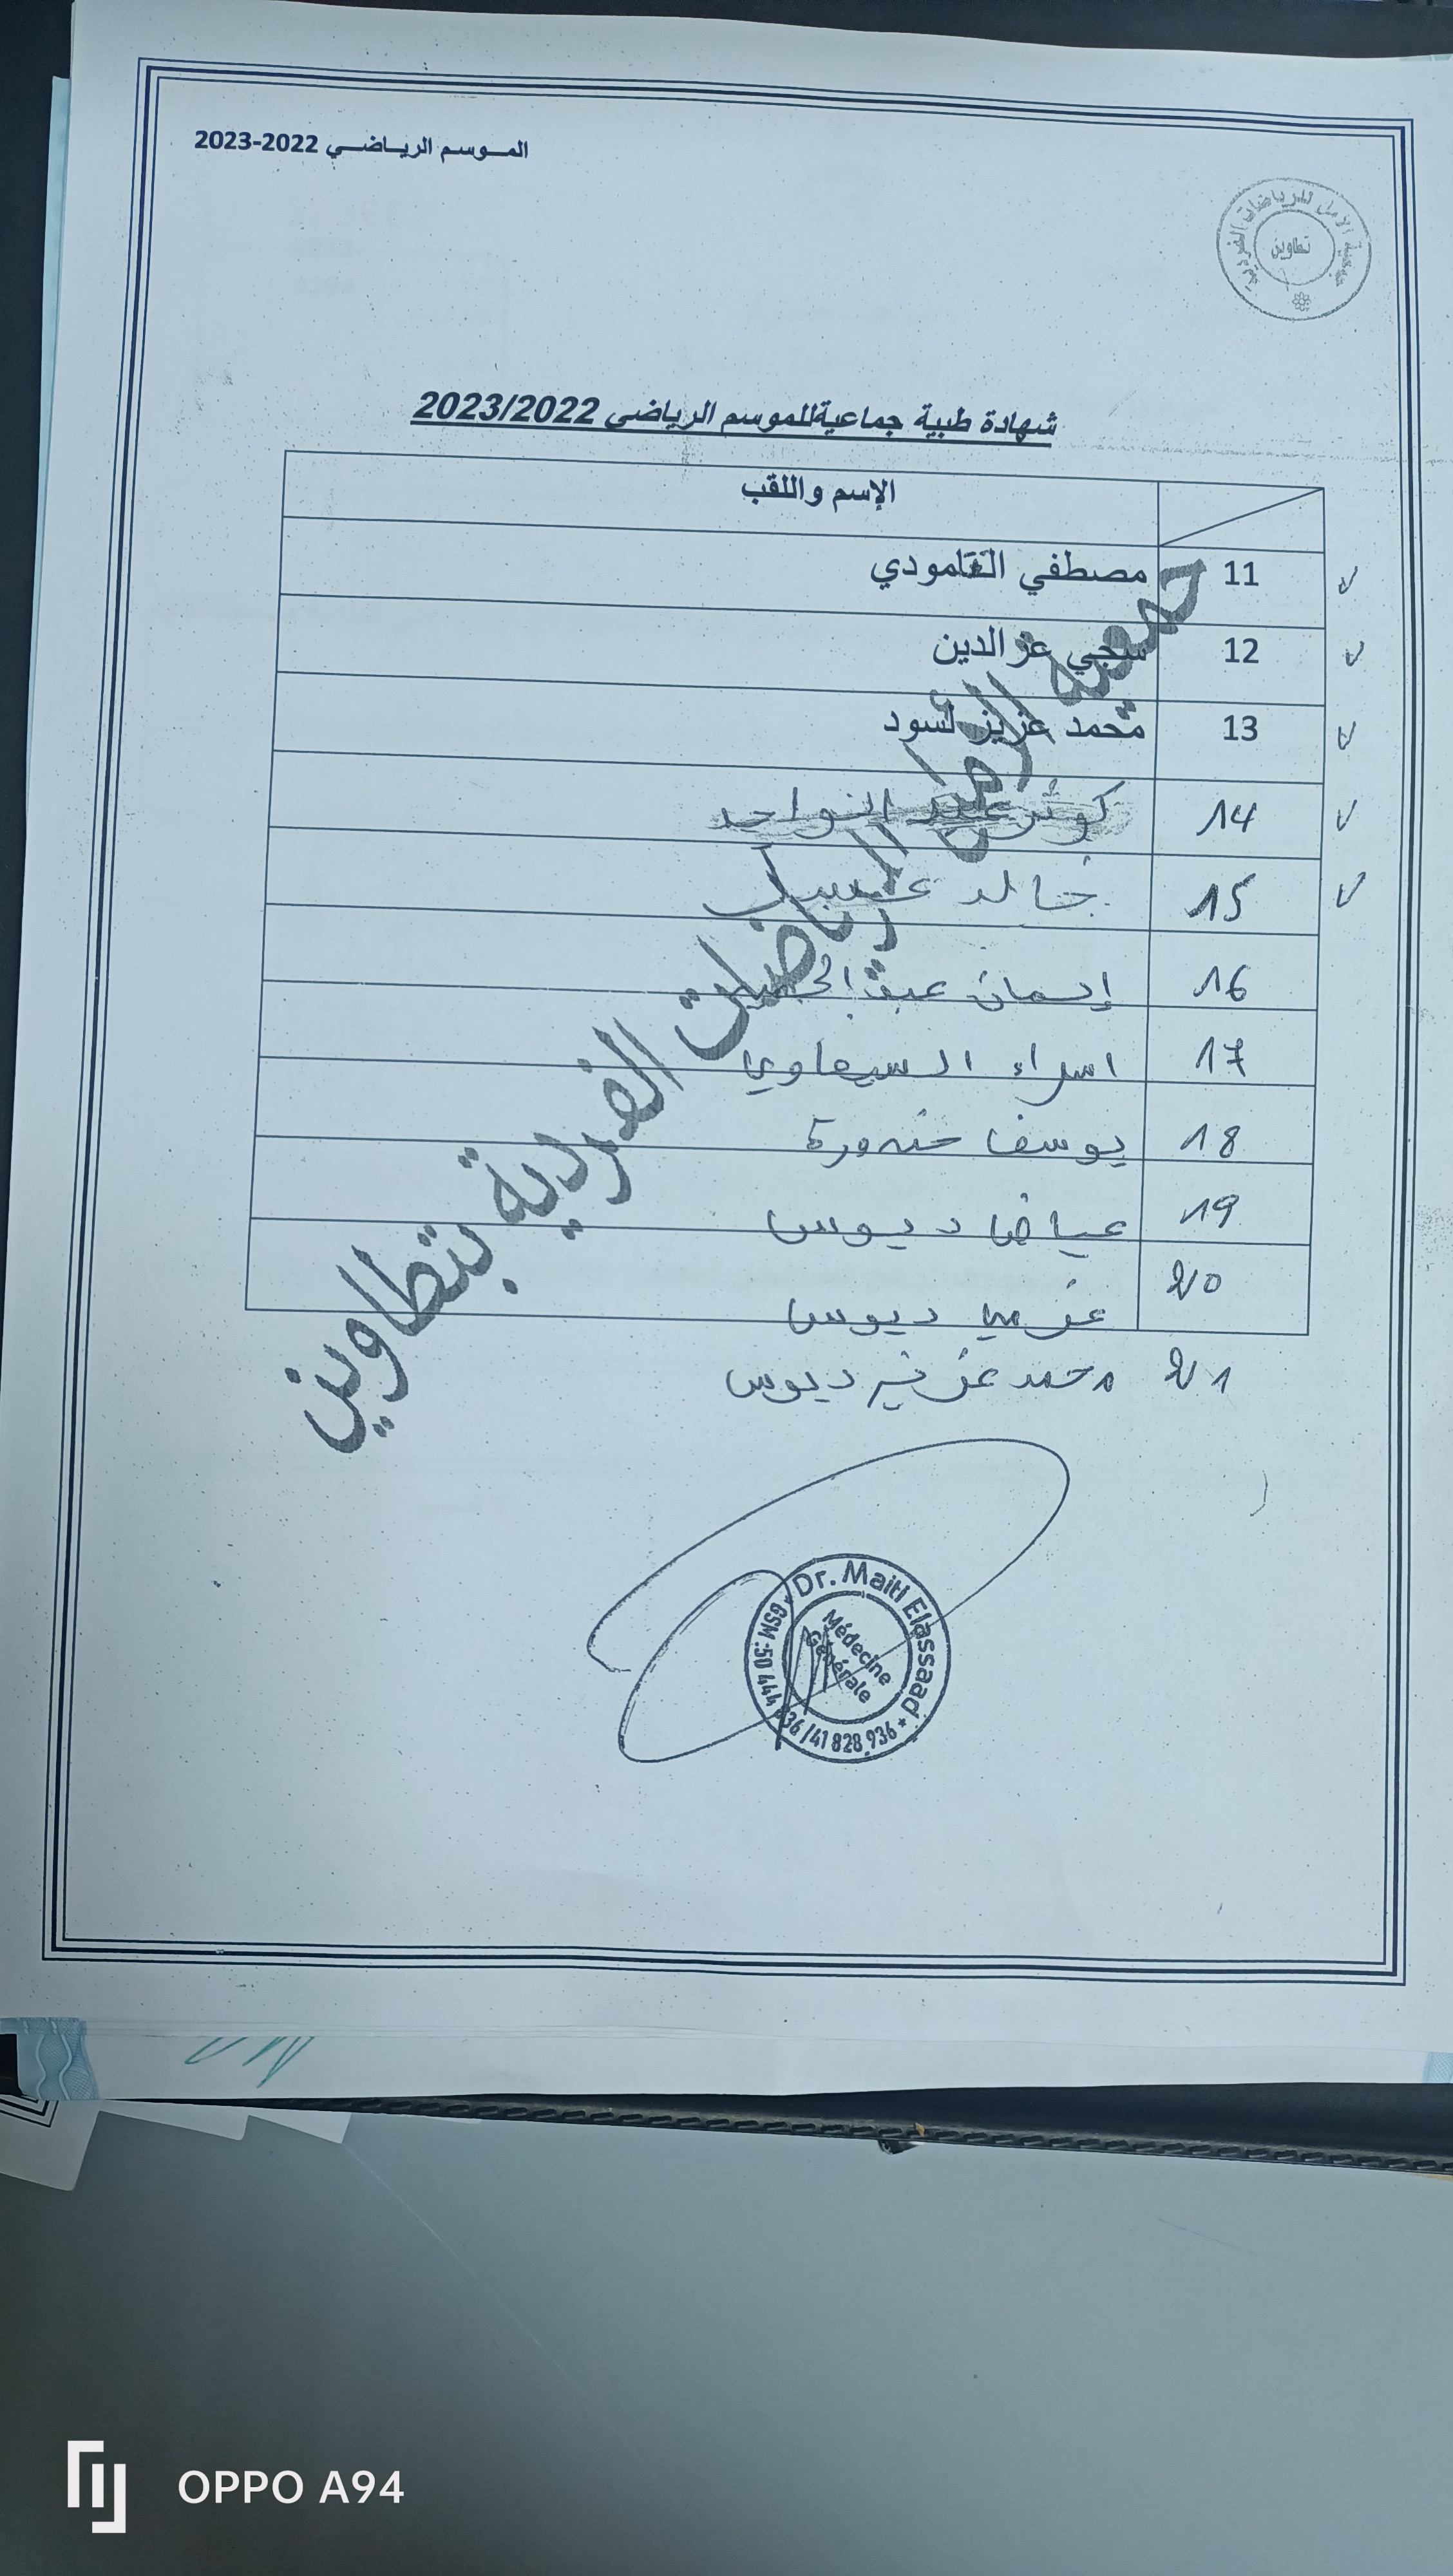 الموسم الرياضي 2022-2023
جمعية الأمل للرياضات الفردية
تطاوين
شهادة طبية جماعيةللموسم الرياضي 2023/2022
الإسم واللقب
11 مصطفي الغامودي
12 عز الدين
13 محمد عزيز لسود
14 كوثر عبد الواحد
15 خالد
16 إيمان
17 اسراء السيعاوي
18 يوسف خنورة
19 عياض ديوس
20 ديوس
21 محمد عزيز ديوس
جمعية الأمل للرياضات الفردية بتطاوين
Dr. Maitl Elassaad
Médecine
Générale
GSM :50 444 936 /41 828 936 *
OPPO A94